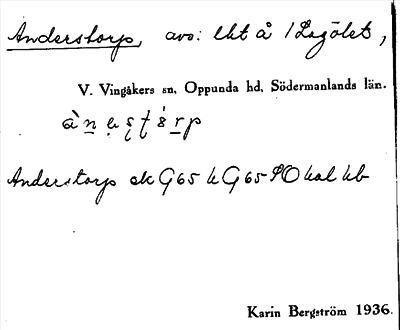 Anderstorp, avs: lht å /Lagölet,
V. Vingåkers sn, Oppunda hd, Södermanlands län.
Anderstorp ek G65 h G65 PO hal hb
Karin Bergström 1936.